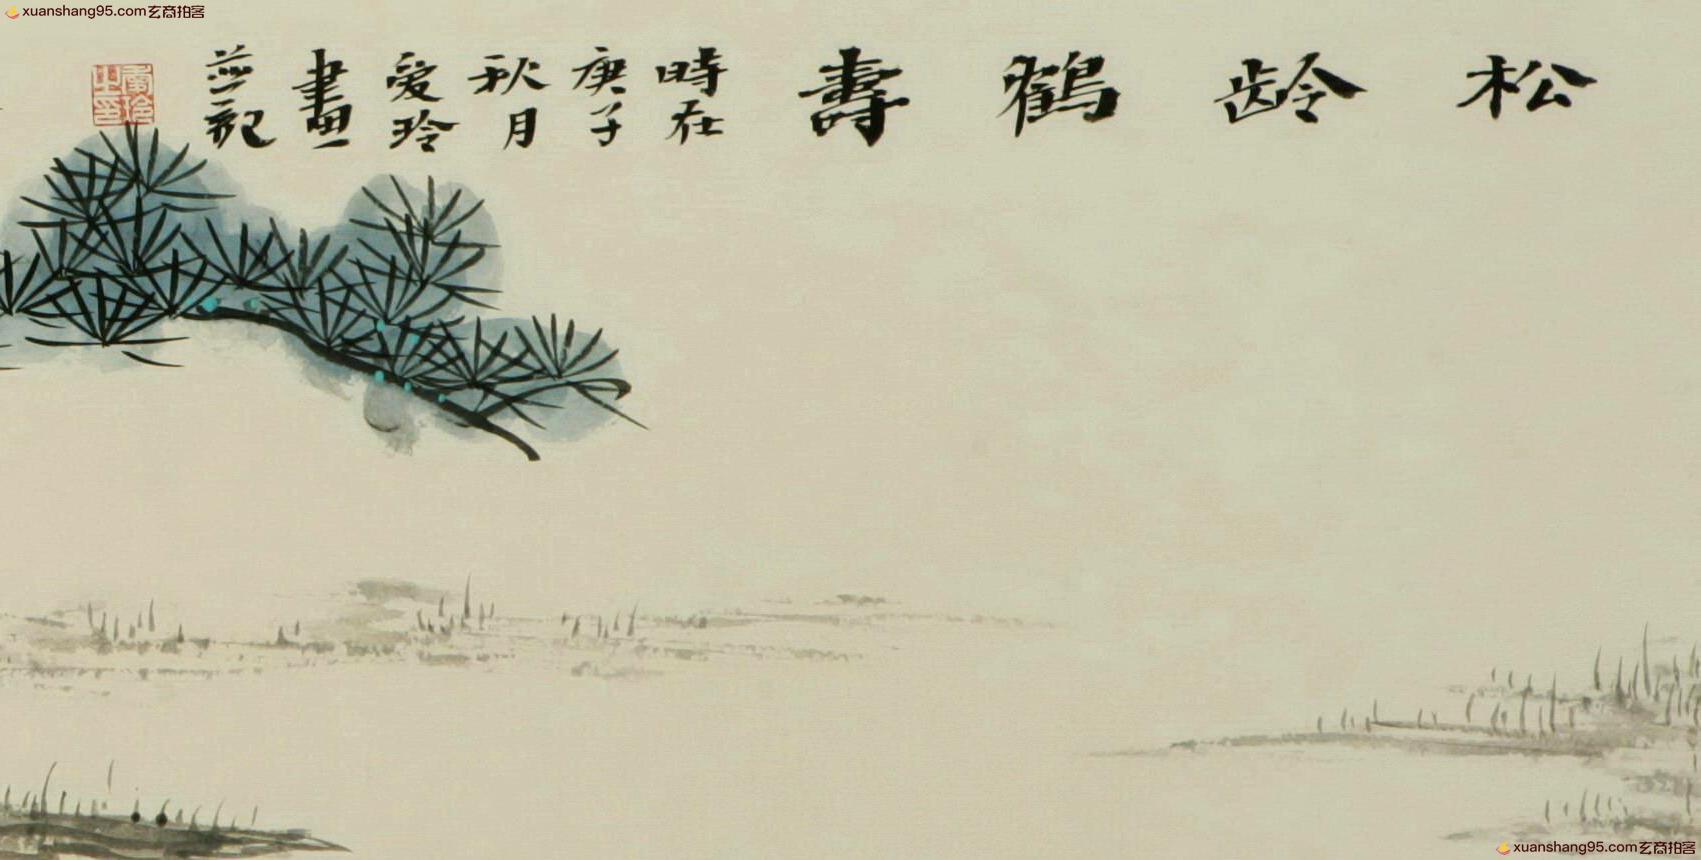 xuanshang95.com玄商拍客
松龄鶴壽
時在
庚子
秋月
爱玲
畫
並記
xuanshang95.com玄商拍客